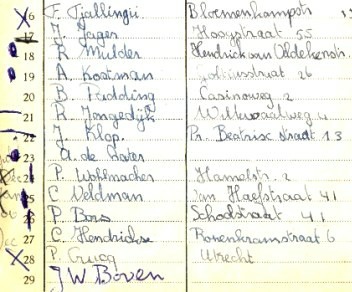 16 F. Tjallingii Bloemenkampstr
17 J. Jager Hooystraat 55
18 R. Mulder Hendrick van Oldekenstr.
19 A. Kooiman 26
20 B. Pudding Casinoweg 2
21 R. Jongedijk 4
22 J. Klop Pr. Beatrix straat 13
23 A. de Water
24 P. Wolsmacher Hamelstr. 2
25 C. Veldman Van Haefstraat 41
26 P. Bors Schoolstraat 41
27 C. Hendrikse Ronenkramstraat 6
28 P. Crucq Utrecht
29 J W Boven